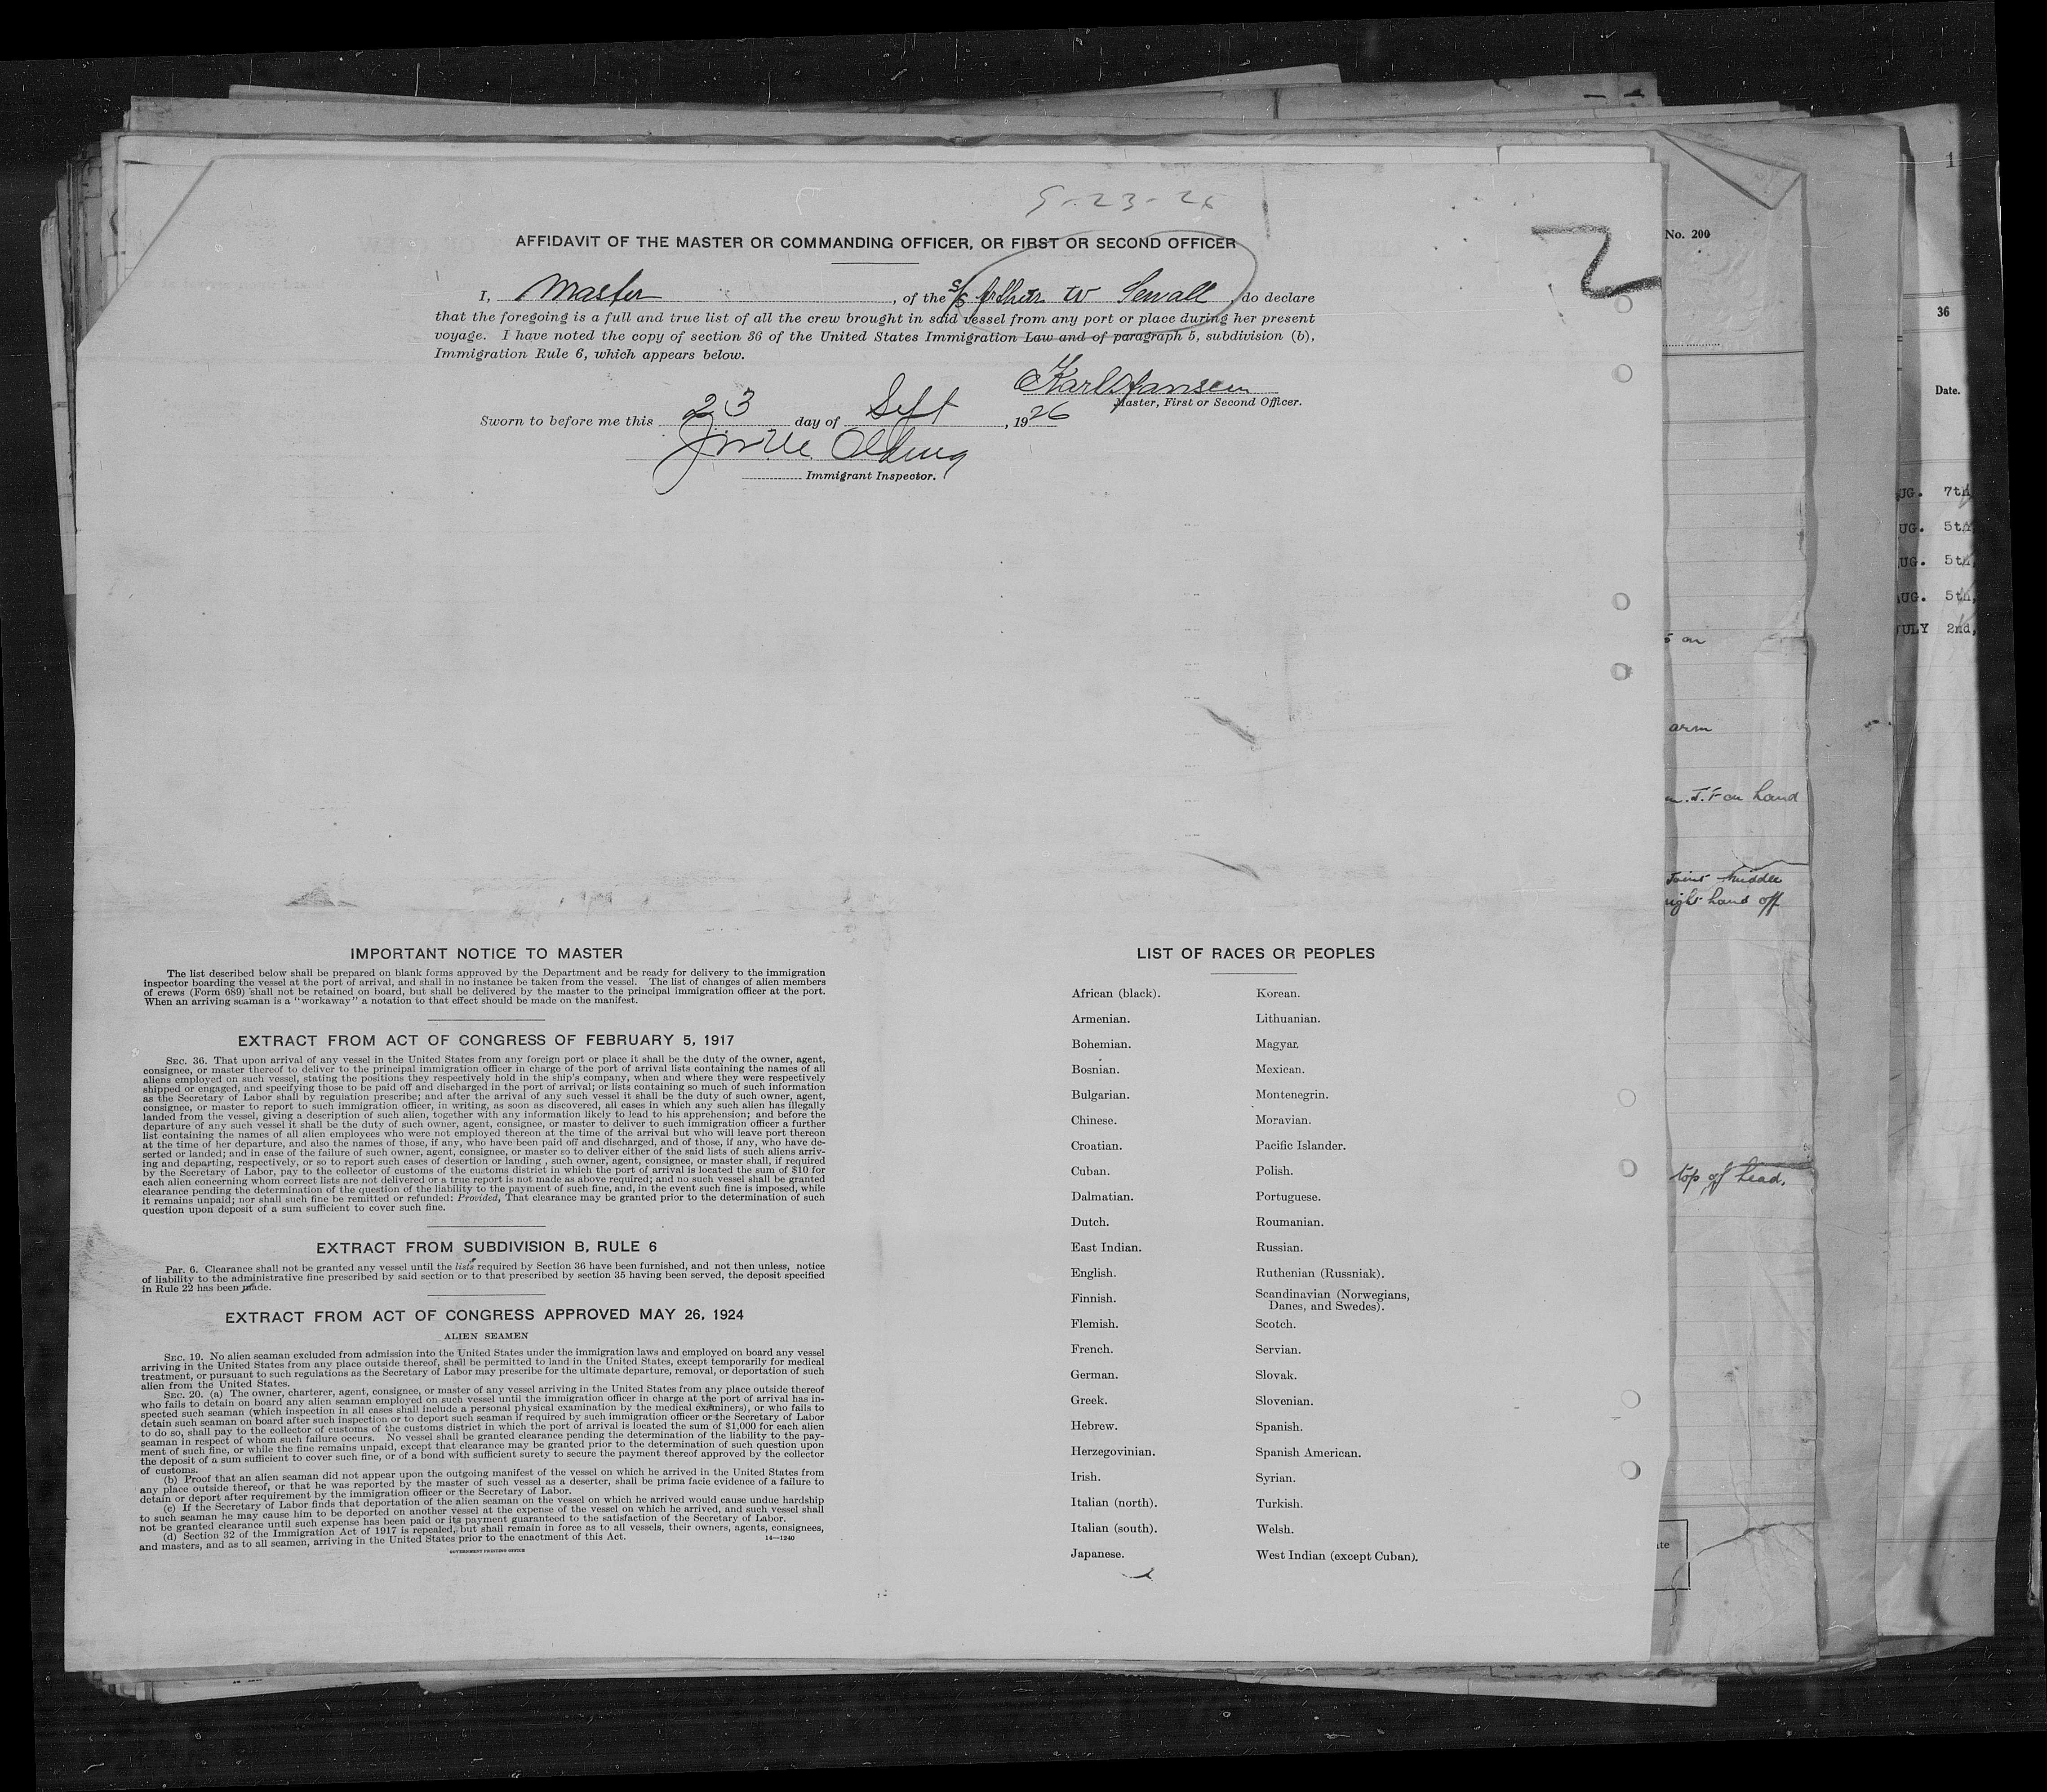 9-23-26
AFFIDAVIT OF THE MASTER OR COMMANDING OFFICER, OR FIRST OR SECOND OFFICER
2
I, Master, of the S/S Arthur W Sewall, do declare
that the foregoing is a full and true list of all the crew brought in said vessel from any port or place during her present
voyage. I have noted the copy of section 36 of the United States Immigration Law and of paragraph 5, subdivision (b),
Immigration Rule 6, which appears below.
Karl Hansen
Master, First or Second Officer.
Sworn to before me this 23 day of Sept, 1926
Immigrant Inspector.
IMPORTANT NOTICE TO MASTER
The list described below shall be prepared on blank forms approved by the Department and be ready for delivery to the immigration
inspector boarding the vessel at the port of arrival, and shall in no instance be taken from the vessel. The list of changes of alien members
of crews (Form 689) shall not be retained on board, but shall be delivered by the master to the principal immigration officer at the port.
When an arriving seaman is a "workaway" a notation to that effect should be made on the manifest.
EXTRACT FROM ACT OF CONGRESS OF FEBRUARY 5, 1917
SEC. 36. That upon arrival of any vessel in the United States from any foreign port or place it shall be the duty of the owner, agent,
consignee, or master thereof to deliver to the principal immigration officer in charge of the port of arrival lists containing the names of all
aliens employed on such vessel, stating the positions they respectively hold in the ship's company, when and where they were respectively
shipped or engaged, and specifying those to be paid off and discharged in the port of arrival; or lists containing so much of such information
as the Secretary of Labor shall by regulation prescribe; and after the arrival of any such vessel it shall be the duty of such owner, agent,
consignee, or master to report to such immigration officer, in writing, as soon as discovered, all cases in which any such alien has illegally
landed from the vessel, giving a description of such alien, together with any information likely to lead to his apprehension; and before the
departure of any such vessel it shall be the duty of such owner, agent, consignee, or master to deliver to such immigration officer a further
list containing the names of all alien employees who were not employed thereon at the time of the arrival but who will leave port thereon
at the time of her departure, and also the names of those, if any, who have been paid off and discharged, and of those, if any, who have de-
serted or landed; and in case of the failure of such owner, agent, consignee, or master so to deliver either of the said lists of such aliens arriv-
ing and departing, respectively, or so to report such cases of desertion or landing, such owner, agent, consignee, or master shall, if required
by the Secretary of Labor, pay to the collector of customs of the customs district in which the port of arrival is located the sum of $10 for
each alien concerning whom correct lists are not delivered or a true report is not made as above required; and no such vessel shall be granted
clearance pending the determination of the question of the liability to the payment of such fine, and, in the event such fine is imposed, while
it remains unpaid; nor shall such fine be remitted or refunded: Provided, That clearance may be granted prior to the determination of such
question upon deposit of a sum sufficient to cover such fine.
EXTRACT FROM SUBDIVISION B, RULE 6
Par. 6. Clearance shall not be granted any vessel until the lists required by Section 36 have been furnished, and not then unless, notice
of liability to the administrative fine prescribed by said section or to that prescribed by section 35 having been served, the deposit specified
in Rule 22 has been made.
EXTRACT FROM ACT OF CONGRESS APPROVED MAY 26, 1924
ALIEN SEAMEN
SEC. 19. No alien seaman excluded from admission into the United States under the immigration laws and employed on board any vessel
arriving in the United States from any place outside thereof, shall be permitted to land in the United States, except temporarily for medical
treatment, or pursuant to such regulations as the Secretary of Labor may prescribe for the ultimate departure, removal, or deportation of such
alien from the United States.
SEC. 20. (a) The owner, charterer, agent, consignee, or master of any vessel arriving in the United States from any place outside thereof
who fails to detain on board any alien seaman employed on such vessel until the immigration officer in charge at the port of arrival has in-
spected such seaman (which inspection in all cases shall include a personal physical examination by the medical examiners), or who fails to
detain such seaman on board after such inspection or to deport such seaman if required by such immigration officer or the Secretary of Labor
to do so, shall pay to the collector of customs of the customs district in which the port of arrival is located the sum of $1,000 for each alien
seaman in respect of whom such failure occurs. No vessel shall be granted clearance pending the determination of the liability to the pay-
ment of such fine, or while the fine remains unpaid, except that clearance may be granted prior to the determination of such question upon
the deposit of a sum sufficient to cover such fine, or of a bond with sufficient surety to secure the payment thereof approved by the collector
of customs.
(b) Proof that an alien seaman did not appear upon the outgoing manifest of the vessel on which he arrived in the United States from
any place outside thereof, or that he was reported by the master of such vessel as a deserter, shall be prima facie evidence of a failure to
detain or deport after requirement by the immigration officer or the Secretary of Labor.
(c) If the Secretary of Labor finds that deportation of the alien seaman on the vessel on which he arrived would cause undue hardship
to such seaman he may cause him to be deported on another vessel at the expense of the vessel on which he arrived, and such vessel shall
not be granted clearance until such expense has been paid or its payment guaranteed to the satisfaction of the Secretary of Labor.
(d) Section 32 of the Immigration Act of 1917 is repealed, but shall remain in force as to all vessels, their owners, agents, consignees,
and masters, and as to all seamen, arriving in the United States prior to the enactment of this Act. 14—1240
GOVERNMENT PRINTING OFFICE
LIST OF RACES OR PEOPLES
African (black).
Armenian.
Bohemian.
Bosnian.
Bulgarian.
Chinese.
Croatian.
Cuban.
Dalmatian.
Dutch.
East Indian.
English.
Finnish.
Flemish.
French.
German.
Greek.
Hebrew.
Herzegovinian.
Irish.
Italian (north).
Italian (south).
Japanese.
Korean.
Lithuanian.
Magyar.
Mexican.
Montenegrin.
Moravian.
Pacific Islander.
Polish.
Portuguese.
Roumanian.
Russian.
Ruthenian (Russniak).
Scandinavian (Norwegians,
Danes, and Swedes).
Scotch.
Servian.
Slovak.
Slovenian.
Spanish.
Spanish American.
Syrian.
Turkish.
Welsh.
West Indian (except Cuban).
No. 200
on
arm
on hand
Joint middle
right hand off
top of head.
1
36
Date.
UG. 7th
UG. 5th
UG. 5th
AUG. 5th,
JULY 2nd,